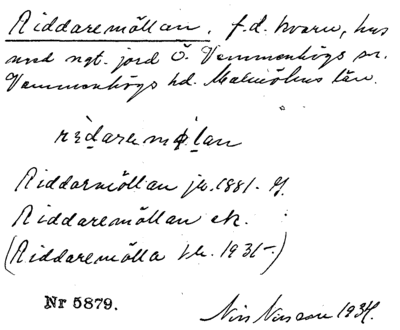 Riddaremöllan, f.d. kvarn, hus
med ngt. jord Ö. Vemmenhögs sn.
Vemmenhögs hd. Malmöhus län.
Riddarmöllan jb. 1881.
Riddaremöllan ek.
(Riddaremölla 1931-)
Nr 5879.
Nils Nilsson 1934.